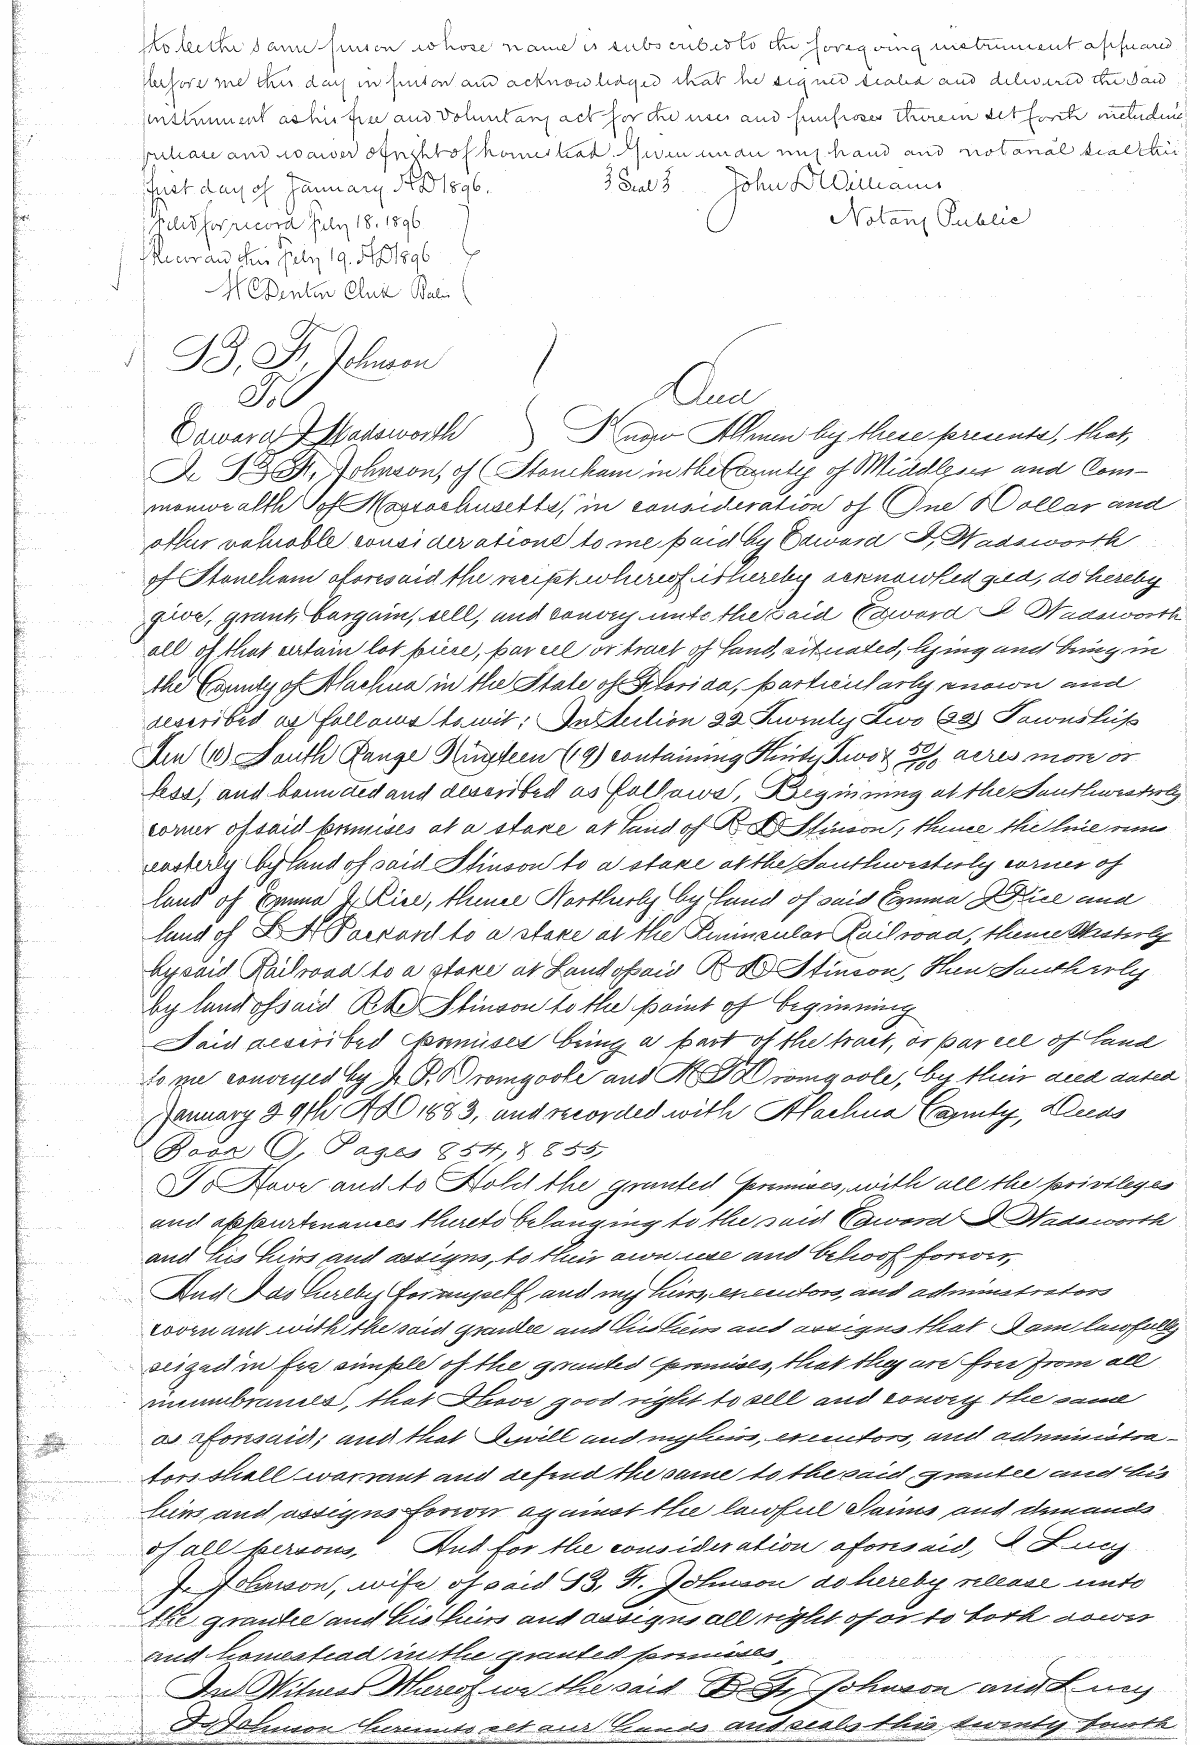 to be the same person whose name is subscribed to the foregoing instrument appeared
before me this day in person and acknowledged that he signed sealed and delivered the said
instrument as his free and voluntary act for the uses and purposes therein set forth including
release and waiver of right of homestead. Given under my hand and notarial seal this
first day of January AD 1896. Seal John D Williams
Notary Public
Filed for record Feby 18. 1896
Record this Feby 19. AD 1896
H C Denton Clerk
B. F. Johnson
To Deed
Edward I Wadsworth Know All men by these presents, that,
I. B. F. Johnson, of Stoneham in the County of Middlesex and Com-
monwealth of Massachusetts, in consideration of One Dollar and
other valuable considerations to me paid by Edward I. Wadsworth
of Stoneham aforesaid the reciept whereof is hereby acknowledged, do hereby
give, grant, bargain, sell, and convey unto the said Edward I Wadsworth
all of that certain lot, piece, parcel or tract of land, situated, lying and being in
the County of Alachua in the State of Florida, particularly known and
described as follows to wit: In Section 22 Twenty Two (22) Township
Ten (10) South Range Nineteen (19) containing Thirty Two & 50/100 acres more or
less, and bounded and described as follows. Beginning at the Southwesterly
corner of said premises at a stake at land of R D Stinson, thence the line runs
easterly by land of said Stinson to a stake at the Southwesterly corner of
land of Emma J. Rice, thence Northerly by land of said Emma J Rice and
land of L H Packard to a stake at the Peninsular Railroad, thence Westerly
by said Railroad to a stake at Land of said R D Stinson, then Southerly
by land of said R D Stinson to the point of beginning
Said described premises being a part of the tract, or parcel of land
to me conveyed by J. P. Dromgoole and Dromgoole, by their deed dated
January 29th AD 1883, and recorded with Alachua County, Deeds
Book O, Pages 854, & 855,
To Have and to Hold the granted premises, with all the privileges
and appurtenances thereto belonging to the said Edward I Wadsworth
and his heirs and assigns, to their own use and behoof forever,
And I do hereby for myself and my heirs, executors, and administrators
covenant with the said grantee and his heirs and assigns that I am lawfully
seized in fee simple of the granted premises, that they are free from all
incumbrances, that I have good right to sell and convey the same
as aforesaid; and that I will and my heirs, executors, and administra-
tors shall warrant and defend the same to the said grantee and his
heirs and assigns forever against the lawful claims and demands
of all persons. And for the consideration aforesaid, I Lucy
J. Johnson, wife of said B. F. Johnson do hereby release unto
the grantee and his heirs and assigns all right of or to both dower
and homestead in the granted premises,
In Witness Whereof we the said B. F. Johnson and Lucy
J. Johnson hereunto set our hands and seals this, twenty fourth